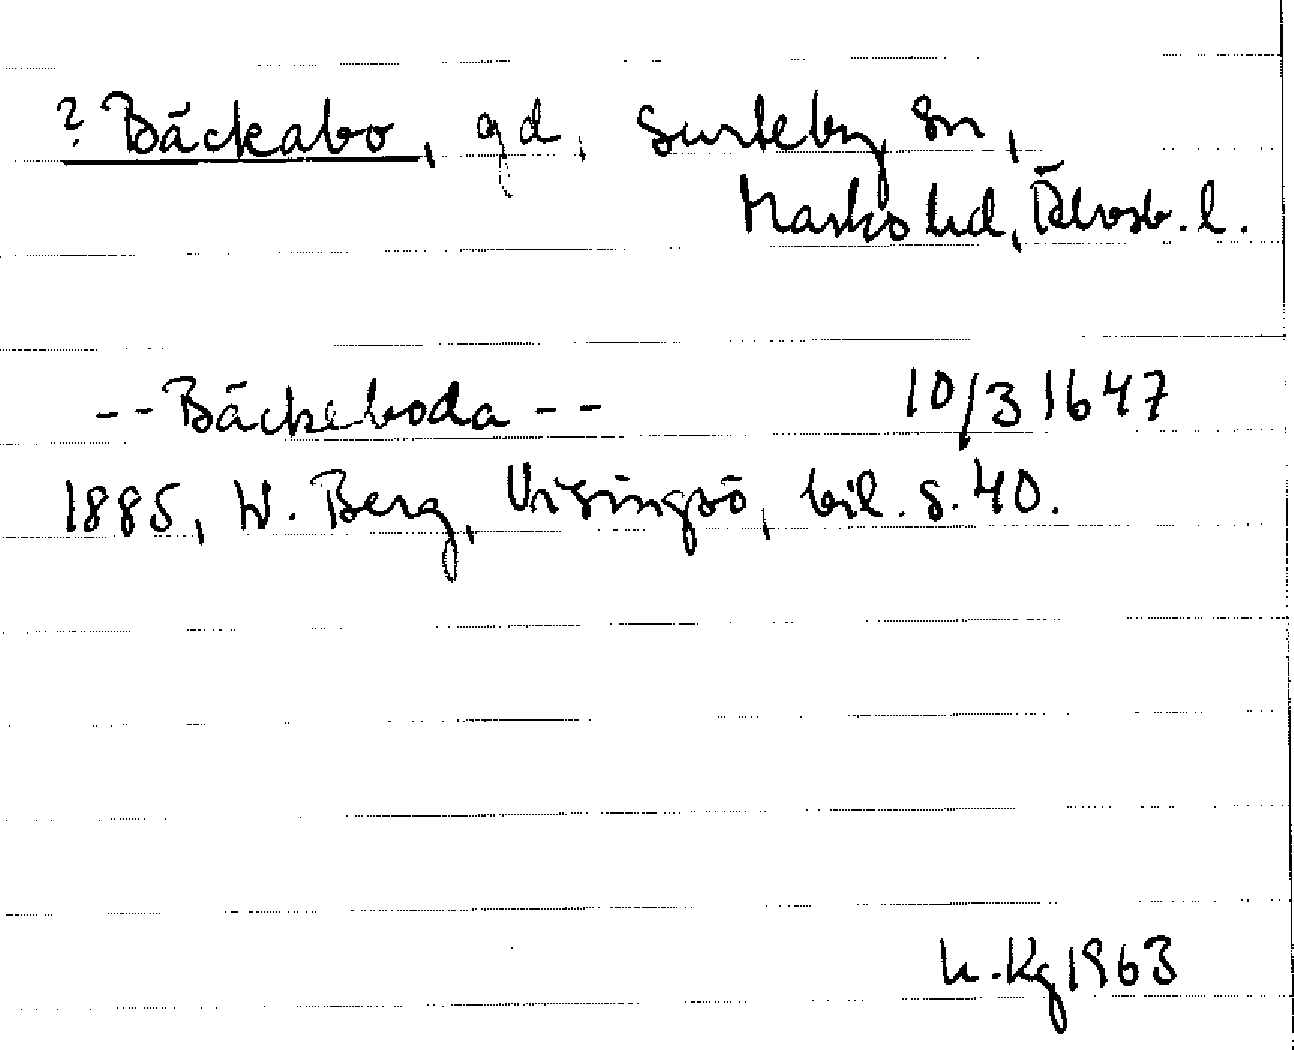 ? Bäckabo, gd, Surteby sn,
Marks hd, Älvsb. l.
-- Bäckeboda -- 10/3 1647
1885, W. Berg, Visingsö, bil. s. 40.
K. Kg 1963